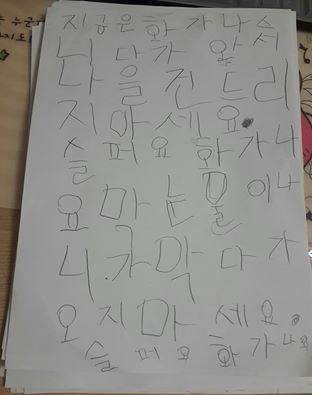 지금은 화가나
니 다 가
다 을 진 드 리
지 마 세 요.
슬 퍼 요 화 가 나
요 마 눈 물 이 나
니 가 막 다 가
오 지 마 세 요.
슬 머 요 화 가 나 요